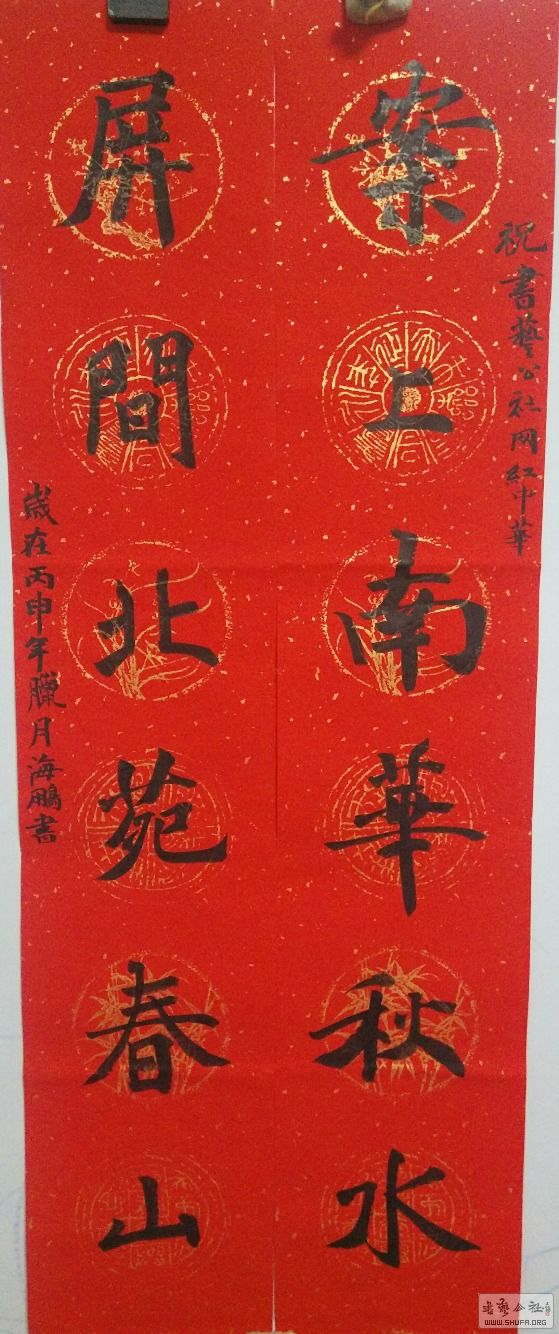 祝書藝公社网紅中華
案上南華秋水
屏間北苑春山
歲在丙申年臘月海鵬書
書藝公社
WWW.SHUFA.ORG